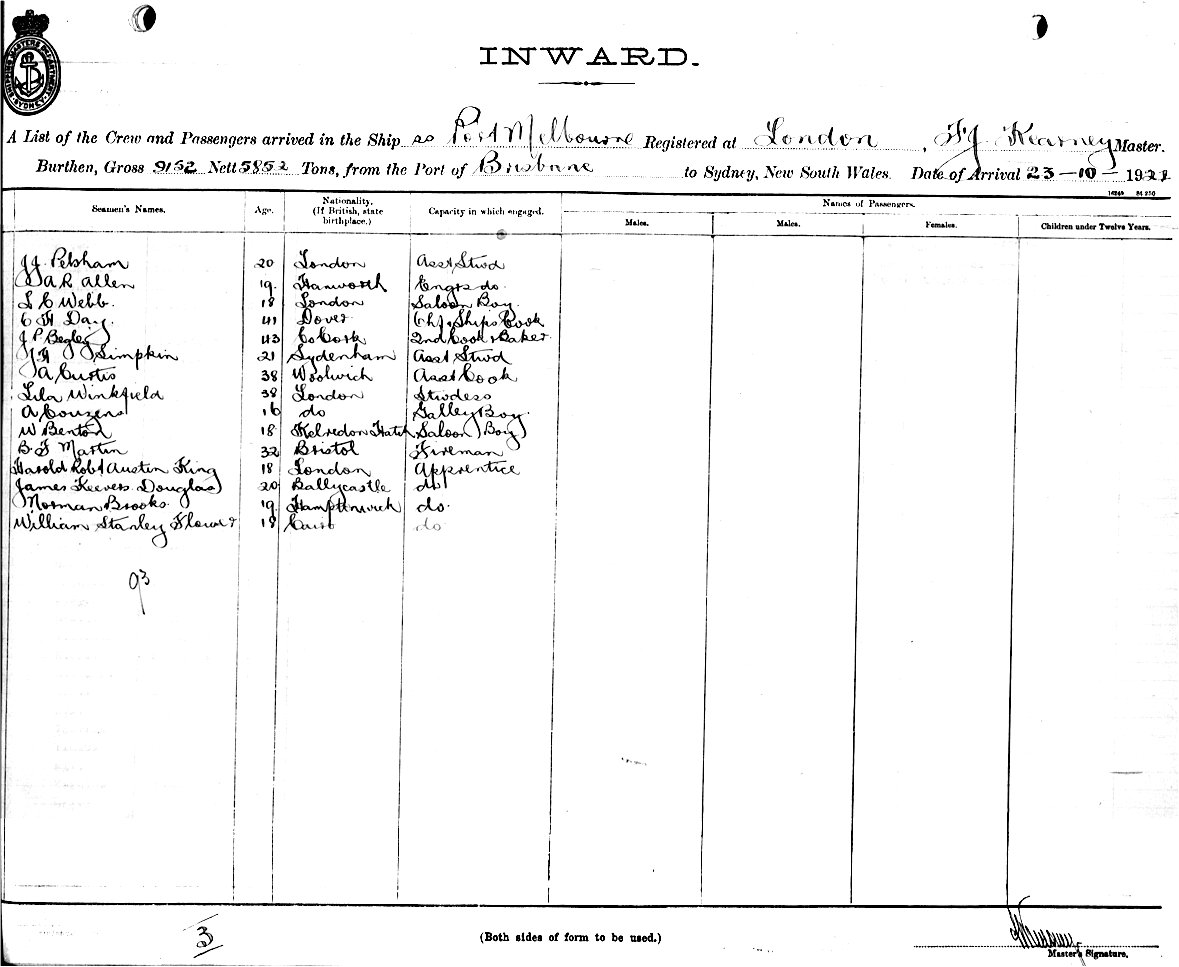 SHIPPING MASTERS DEPARTMENT SYDNEY
INWARD.
A List of the Crew and Passengers arrived in the Ship ss Port Melbourne Registered at London, F J Kearney Master.
Burthen, Gross 9152 Nett 5852 Tons, from the Port of Brisbane to Sydney, New South Wales. Date of Arrival 23-10-192
Seamen's Names. Age. Nationality. (If British, state birthplace.) Capacity in which engaged. Names of Passengers.
Males. Males. Females. Children under Twelve Years.
J J Pelsham 20 London Asst Stwd
A R Allen 19 Hanworth Engrs do.
L C Webb. 18 London Saloon Boy.
C H Day. 41 Dover Chf. Ships Cook
J P Begley 43 Co Cork 2nd Cook & Baker
Simpkin 21 Sydenham Asst Stwd
A Curtis 38 Woolwich Asst Cook
Lila Winkfield 38 London Stwdess
A Couzens 16 do Galley Boy.
W Benton 18 Kelvedon Hatch Saloon Boy
B F Martin 32 Bristol Fireman
Harold Robt Austin King 18 London Apprentice
James Keevers Douglas 20 Ballycastle do
Norman Brooks. 19 Hamptonwick do.
William Stanley Flower 18 Cairo do
93
3
(Both sides of form to be used.)
Master's Signature.